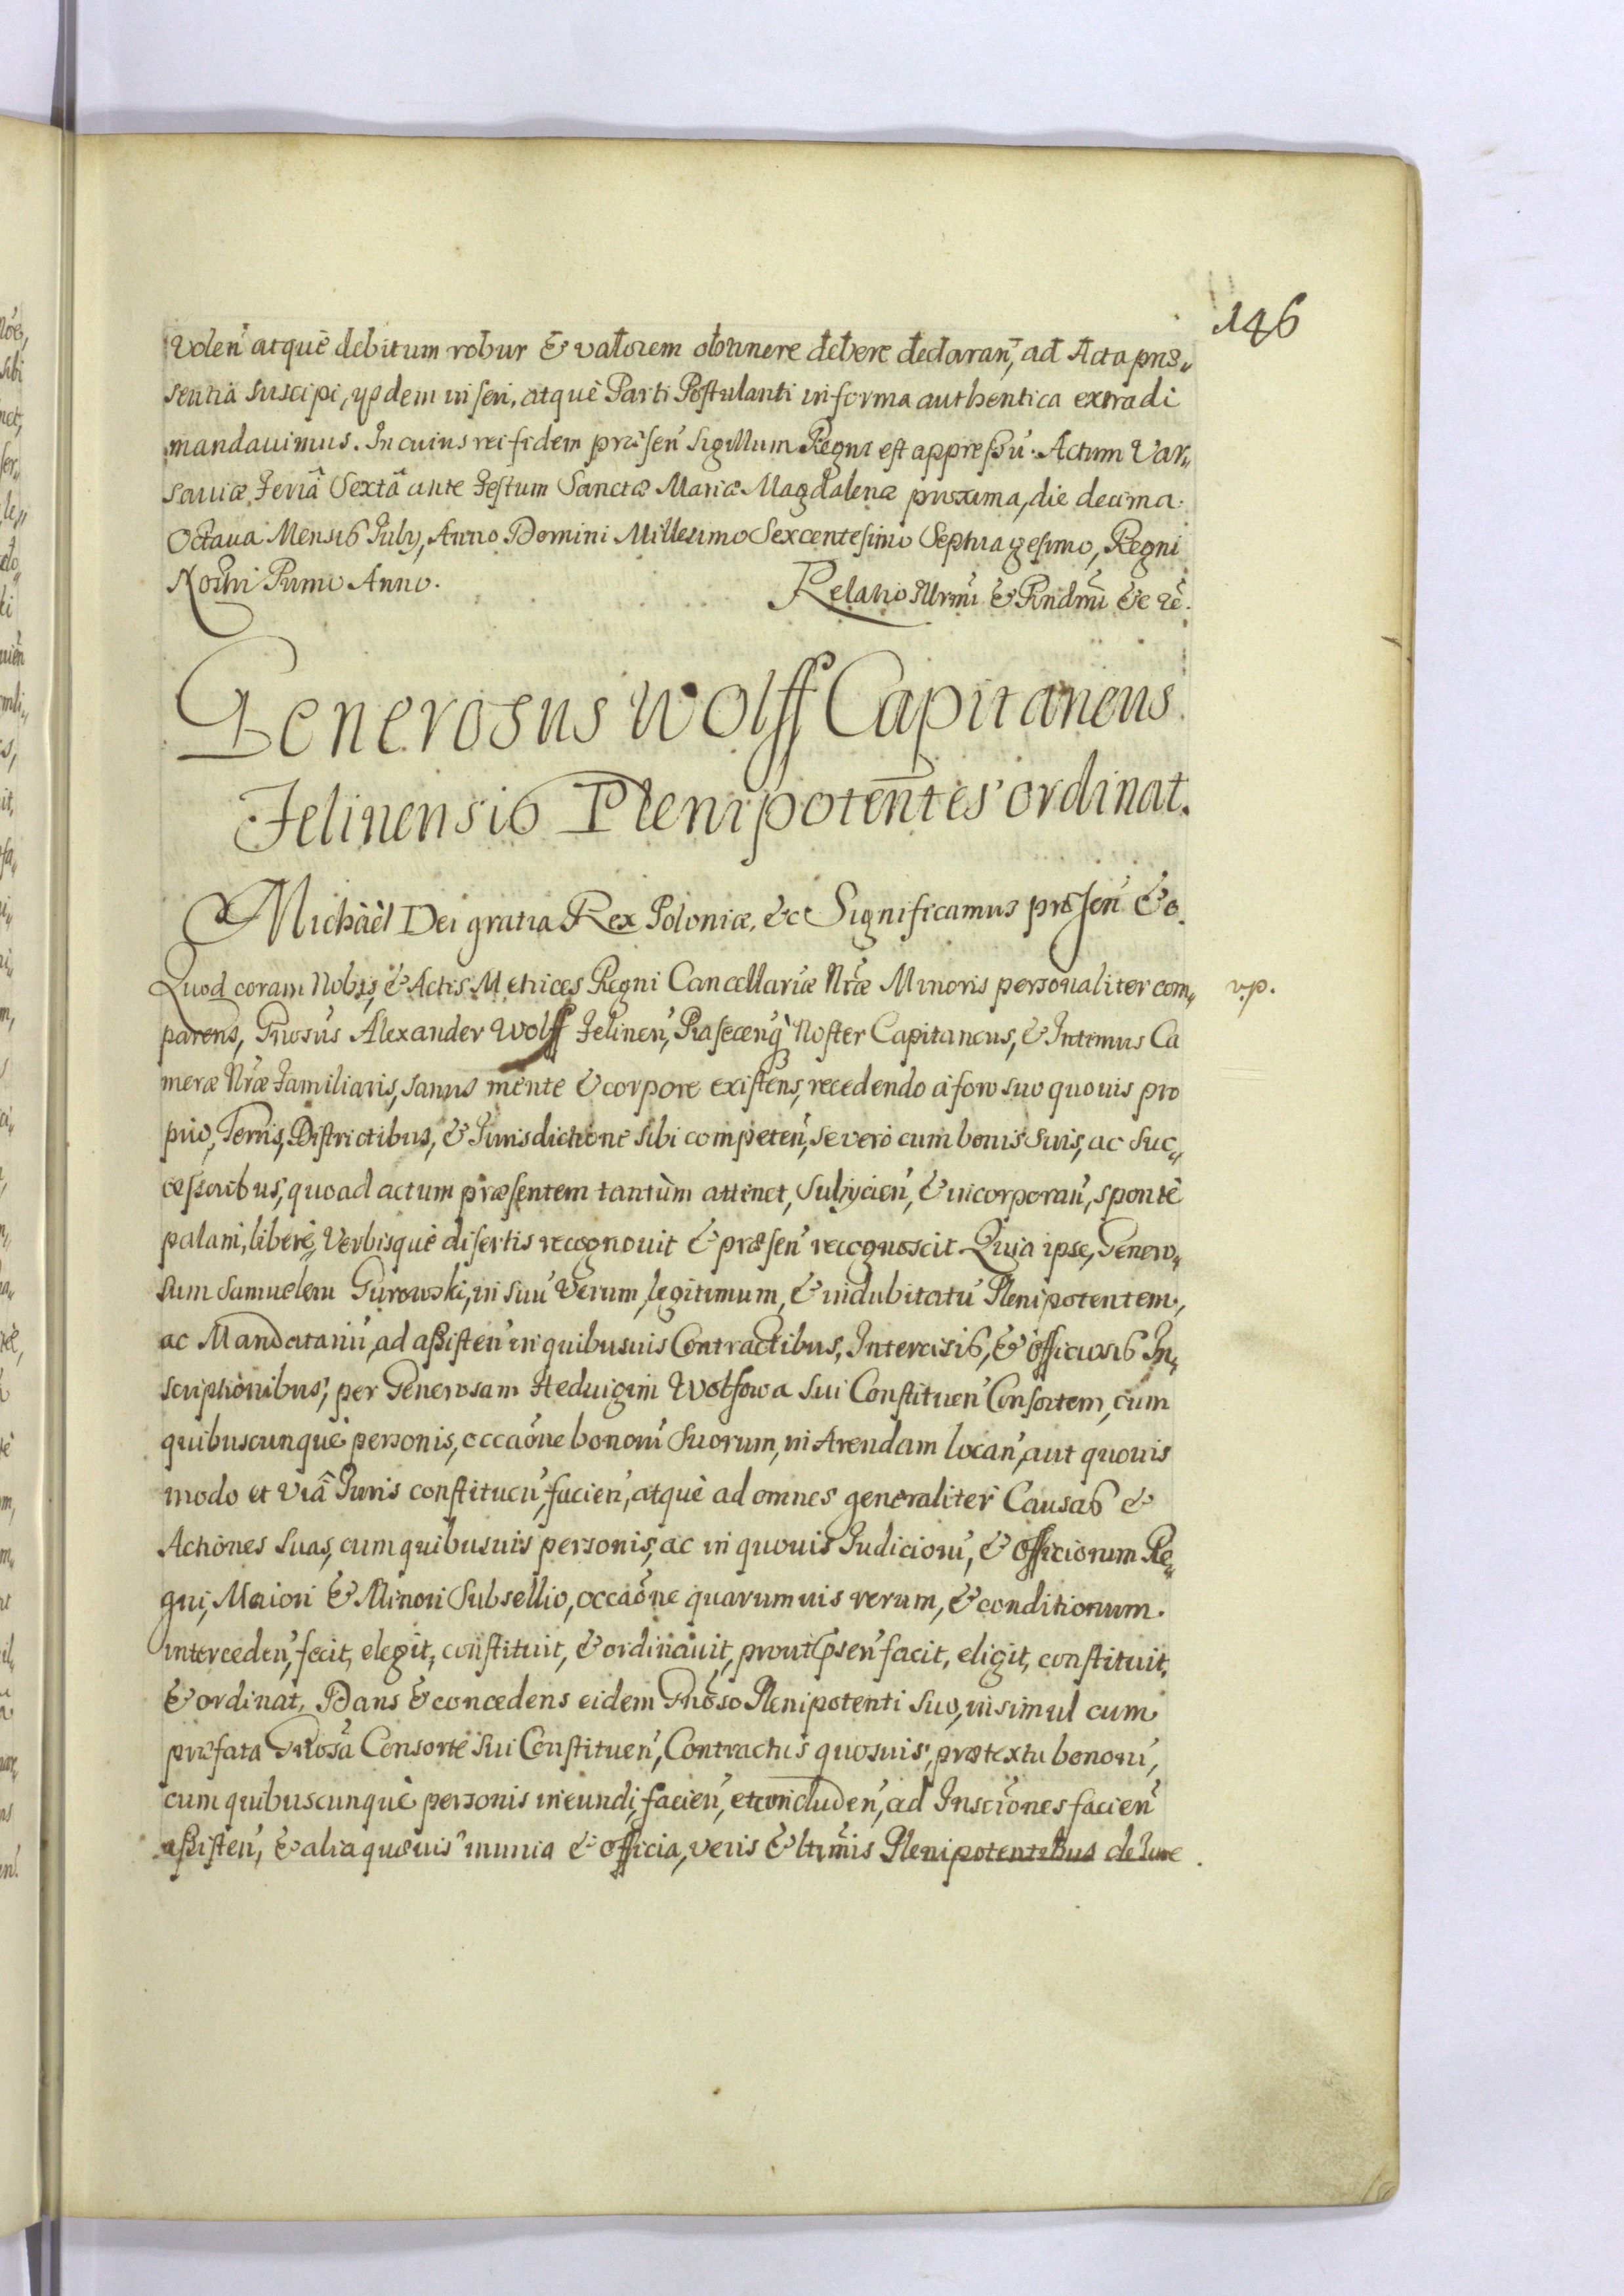 146
volen̄ atquè debitum robur & valorem obtinere debere declaran̄, ad Acta præ„
sentia suscipi, ijsdem inseri, atquè Parti Postulanti in forma authentica extradi
mandauimus. In cuius rei fidem præsen̄ Sigillum Regni est appressū. Actum Var„
sauiæ Feriâ Sextâ ante Festum Sanctæ Mariæ Magdalenæ proxima, die decima
Octaua Mensis July, Anno Domini Millesimo Sexcentesimo Septuagesimo, Regni
Nostri Primo Anno.
Relatio Illrmi & Rndmi &c rē.
Generosus Wolff Capitaneus
Felinensis Plenipotentes ordinat.
Michäèl Dei gratia Rex Poloniæ, &c Significamus præsen̄ &c.
Quod coram Nobis, & Actis Metrices Regni Cancellariæ Nr̄æ Minoris personaliter com„ v.p.
parens, Gnosus Alexander Wolff Felinen̄, Praefecen̄q̀ Noster Capitaneus, & Intimus Ca
meræ Nr̄æ Familiaris, sanus mente & corpore existens, recedendo à foro suo quouis pro
prio, Terris, Districtibus, & Jurisdictione sibi competen̄, se vero cum bonis suis, ac suc„
cessoribus, quoad actum præsentem tantùm attinet, subijcien̄, & incorporan̄, spontè
palam, liberè, Verbisquè disertis recognouit & præsen̄ recognoscit. Quia ipse, Genero„
sum Samuelem Gurowski, in suū verum, legitimum, & indubitatū Plenipotentem,
ac Mandatariū, ad assisten̄ in quibusuis Contractibus, Intercisis, & officiosis In„
scriptionibus, per Generosam Heduigim Wolfowa sui Constituen̄ Consortem, cum
quibuscunquè personis, occaōne bonorū suorum, in Arendam locan̄, aut quouis
modo et viâ Juris constituen̄, facien̄, atquè ad omnes generaliter Causas &
Actiones suas, cum quibusuis personis, ac in quouis Judiciorū, & officiorum Re„
gni, Maiori & Minori Subsellio, occaōne quarumuis rerum, & conditionum
interceden̄, fecit, elegit, constituit, & ordinauit, prout psen̄ facit, eligit, constituit,
& ordinat, Dans & concedens eidem Gnoso Plenipotenti suo, insimul cum
præfata Gnosa Consorte sui Constituen̄, Contractus quosuis, prætextu bonorū,
cum quibuscunquè personis ineundi, facien̄, et concluden̄, ad Inscrōnes facien̄
assisten̄, & alia quæuis munia & officia, veris & ltimis Plenipotentibus de Iure